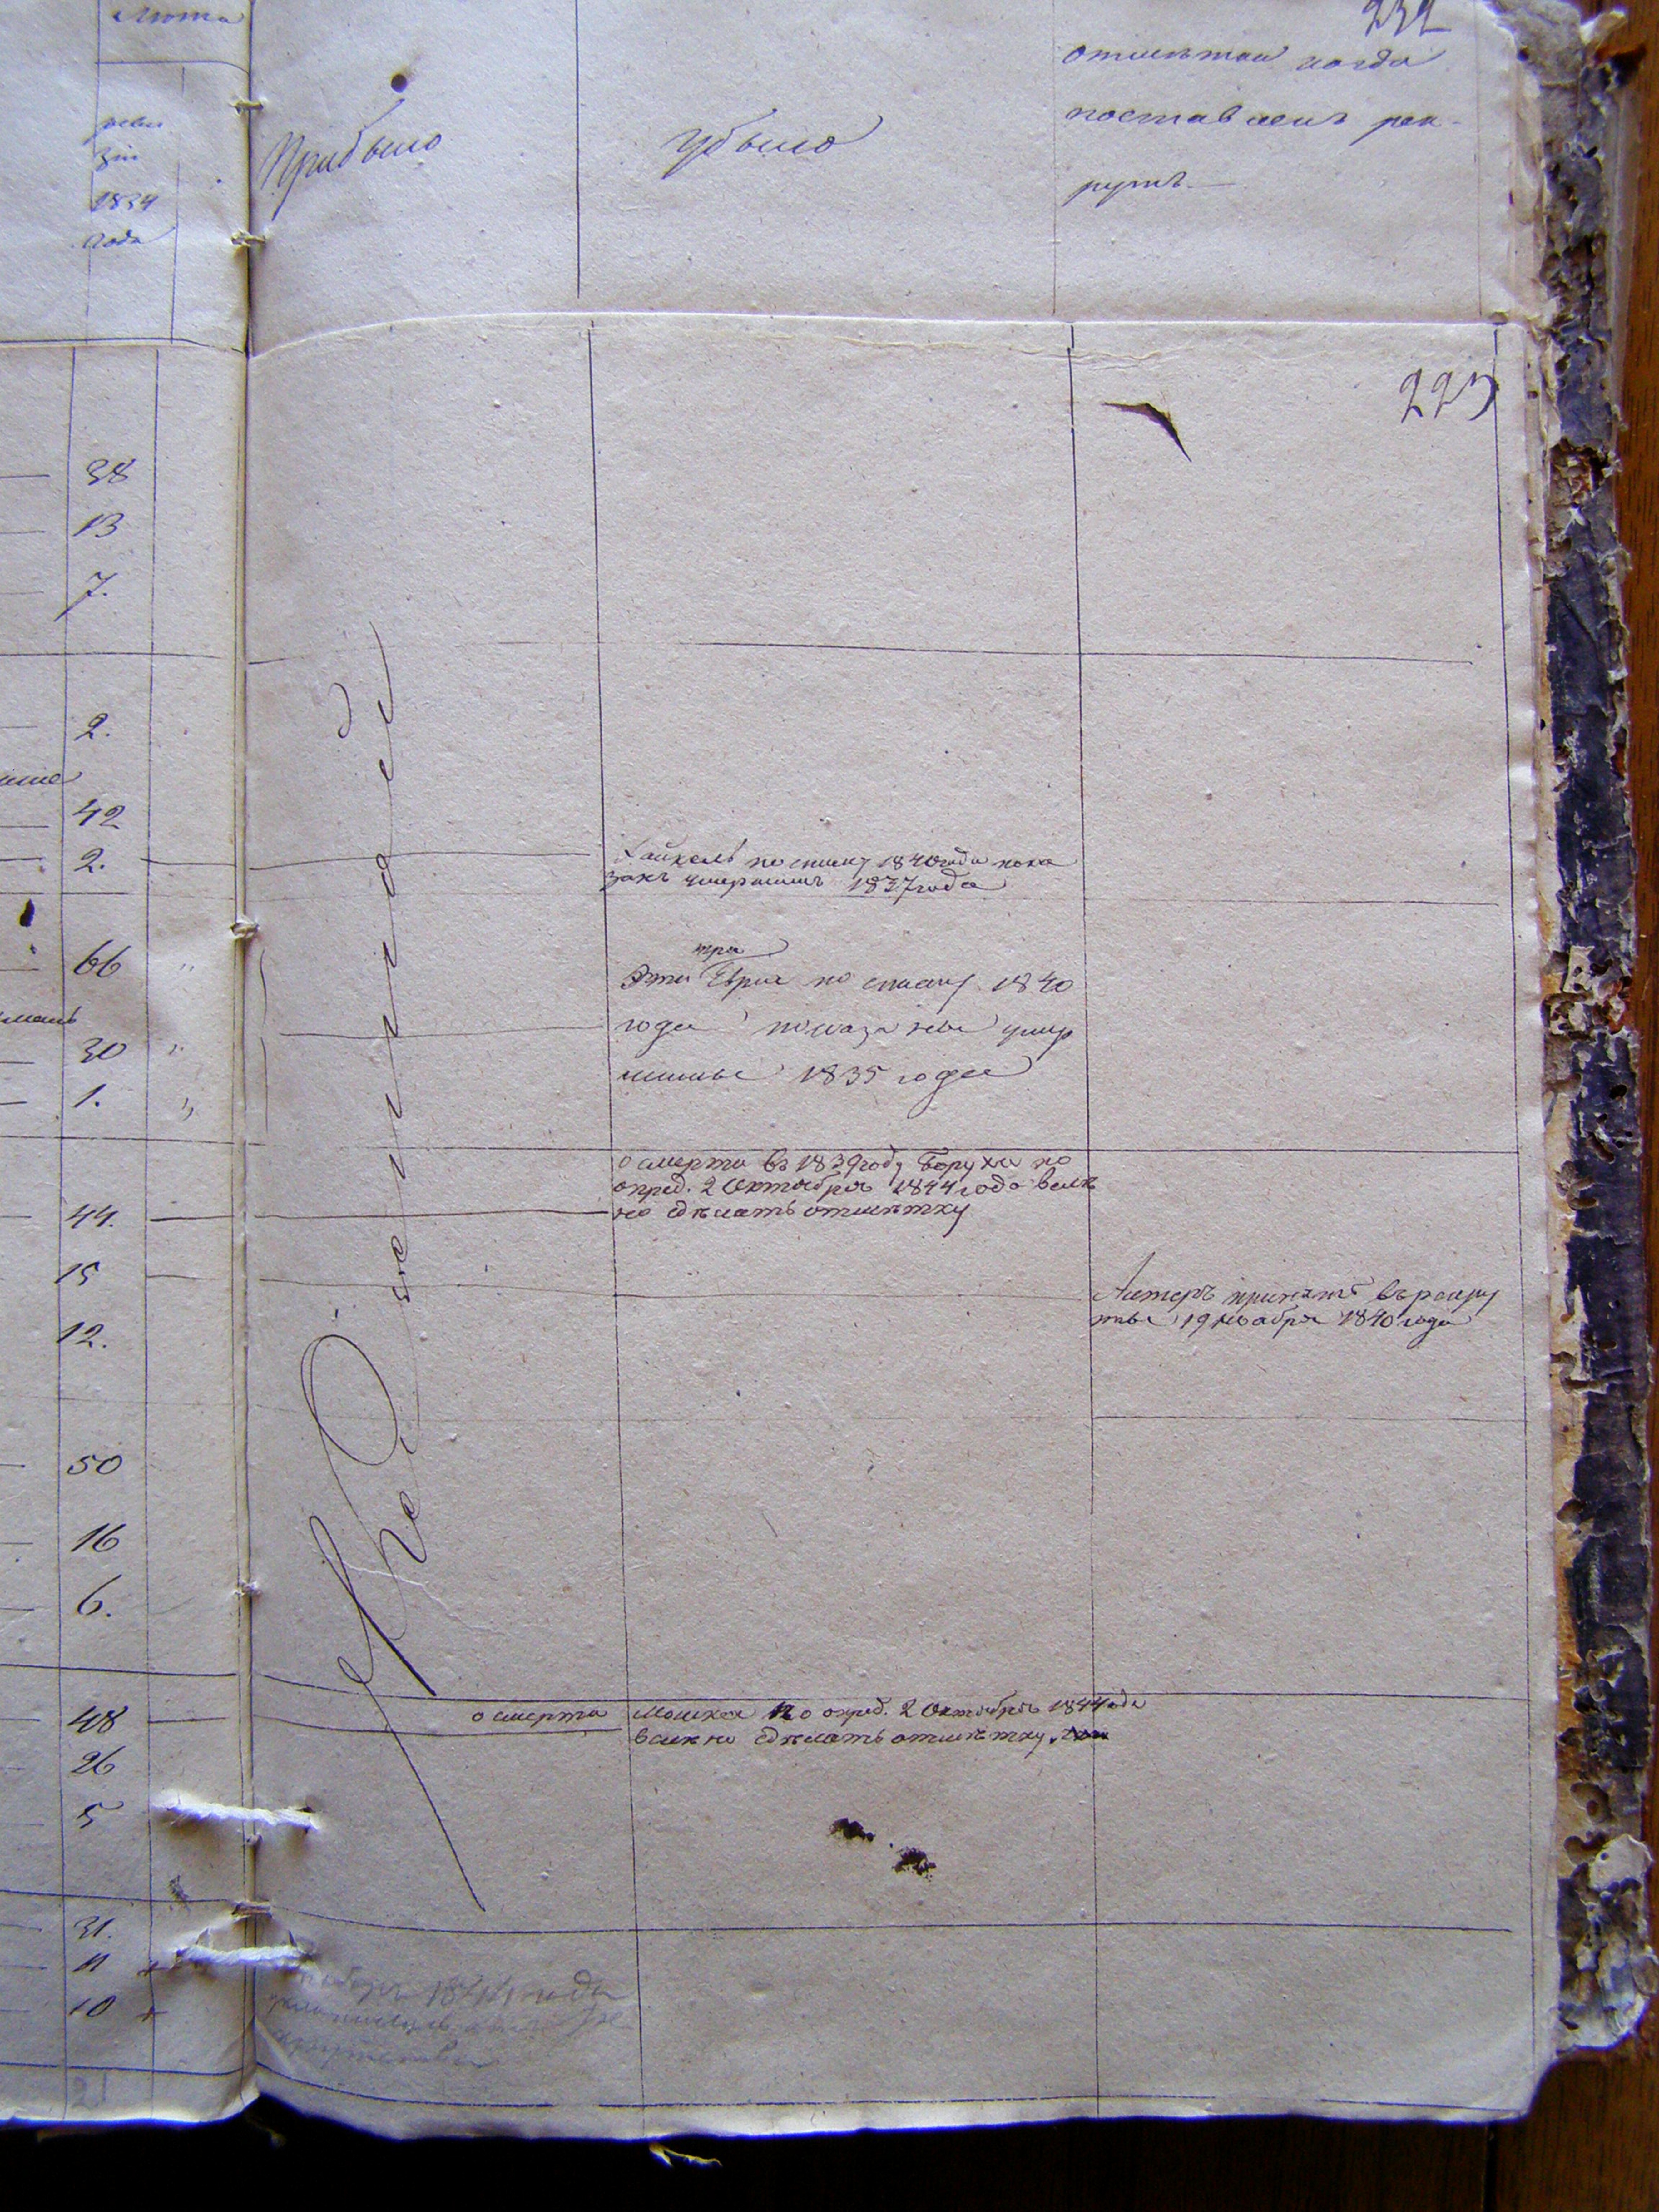 Лѣта
реви
зіи
1834
года
Прибыло
Убыло
232
отмѣтки когда
поставленъ рек-
рутъ.—
223
38
13
7.
2.
42
2.
66
30
1.
44.
15
12.
50
16
6.
48
26
5
31.
11 +
10 +
21
Хайкель по списку 1840 года пока
занъ умершимъ 1837 года
три
Эти Еврея по списку 1840
года показаны умер
шими 1835 года
о смерти въ 1839 году Боруха по
опред. 2 Октября 1844 года велѣ
но сдѣлать отмѣтку
принятъ въ рекру
ты 19 Ноября 1840 года
о смерти Мошка по опред. 2 Октября 1844 года
велѣно сдѣлать отмѣтку.
1844 года